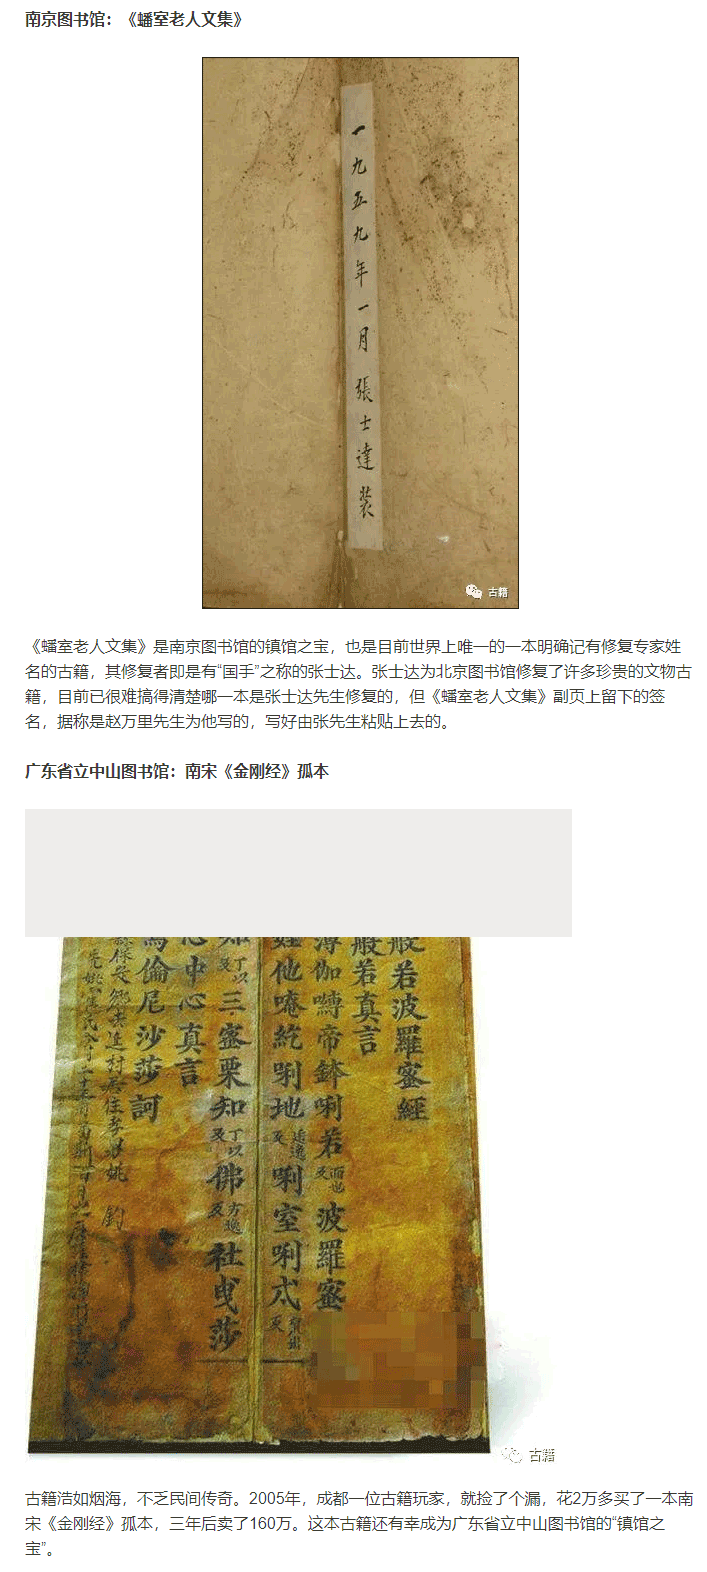 南京图书馆：《蟠室老人文集》
一九五九年一月 張士達装
古籍
《蟠室老人文集》是南京图书馆的镇馆之宝，也是目前世界上唯一的一本明确记有修复专家姓
名的古籍，其修复者即是有“国手”之称的张士达。张士达为北京图书馆修复了许多珍贵的文物古
籍，目前已很难搞得清楚哪一本是张士达先生修复的，但《蟠室老人文集》副页上留下的签
名，据称是赵万里先生为他写的，写好由张先生粘贴上去的。
广东省立中山图书馆：南宋《金刚经》孤本
般若波羅蜜經
般若真言
伽嚩帝鉢唎若波羅蜜
他唵紇唎地唎室唎
三蜜栗知佛社曳莎
心中心真言
倫尼沙莎訶
古籍
古籍浩如烟海，不乏民间传奇。2005年，成都一位古籍玩家，就捡了个漏，花2万多买了一本南
宋《金刚经》孤本，三年后卖了160万。这本古籍还有幸成为广东省立中山图书馆的“镇馆之
宝”。